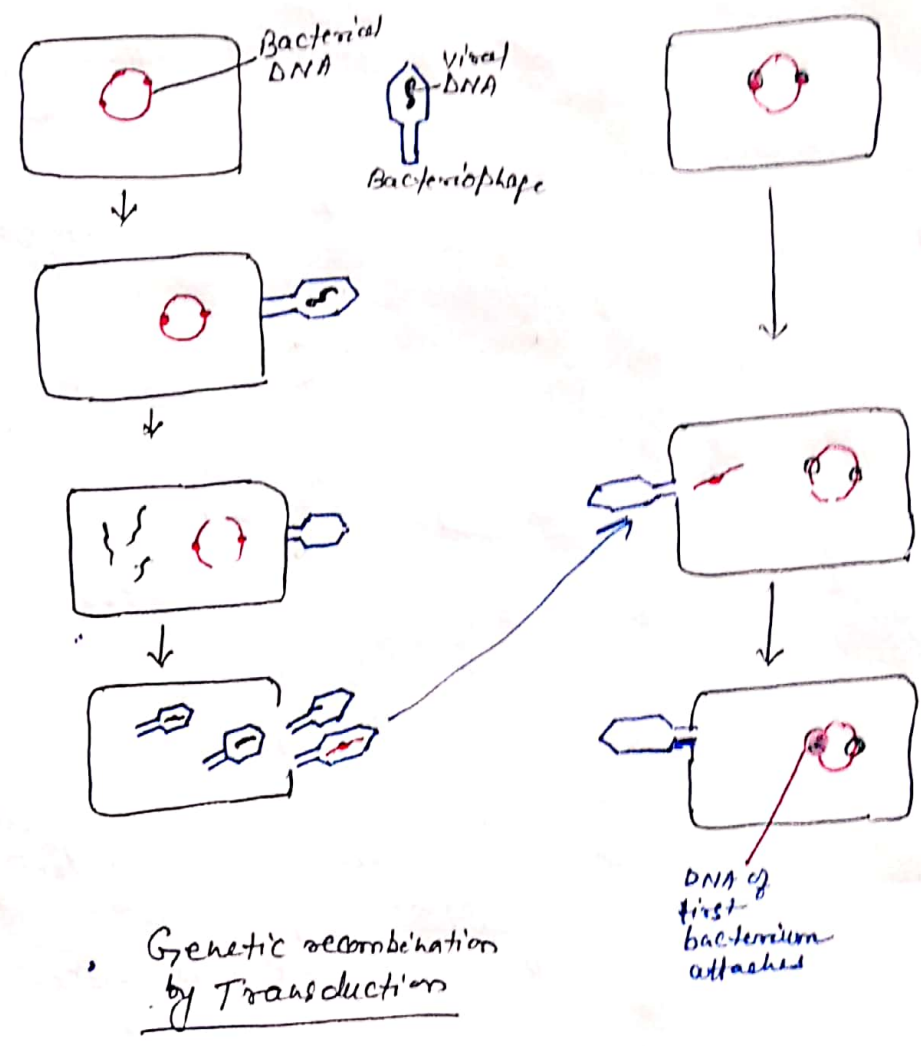 Bacterical
DNA
Viral
DNA
Bacteriophage
DNA of
first
bacterium
attaches
Genetic recombination
by Transduction